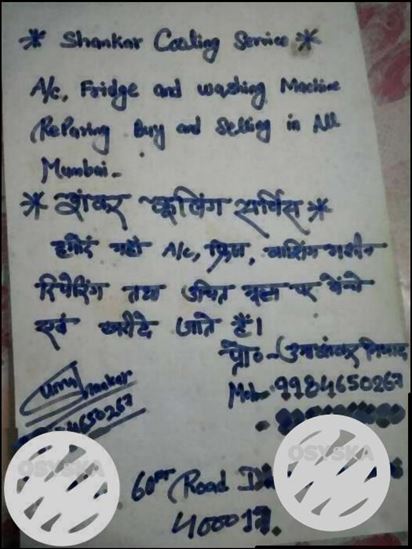 * Shankar Cooling Service *
A/c, Fridge and washing Machine
RePairing Buy and Selling in All
Mumbai.
* शंकर कूलिंग सर्विस *
हमारे यहाँ A/c, फ्रिज, वाशिंग मशीन
रिपेरिंग तथा उचित मूल्य पर बेचे
एवं खरीदे जाते हैं।
प्रो०-उमाशंकर निषाद
Mob. 9984650267
Uma Shankar
4650267
60FT (Road
400017.
OSYSKA
OSYSKA